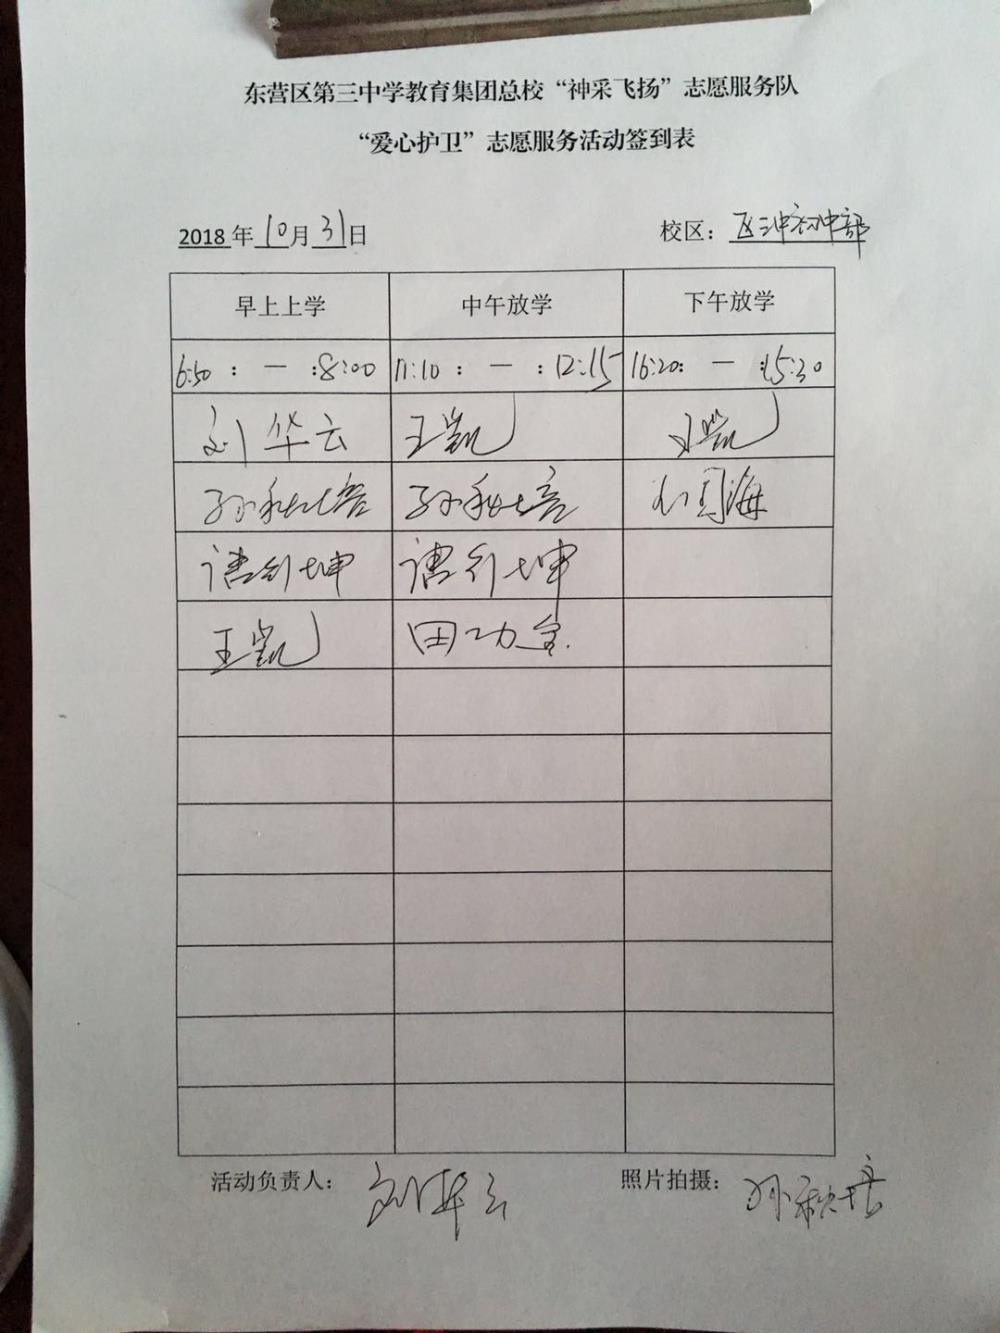 东营区第三中学教育集团总校“神采飞扬”志愿服务队
“爱心护卫”志愿服务活动签到表
2018年10月31日 校区：区三中初中部
早上上学 中午放学 下午放学
6:50 : — :8:00 11:10 : — :12:15 16:20: — :15:30
刘华云 王凯 王凯
孙秋培 孙秋培 海
坤 坤
王凯 田功宝
活动负责人：刘华云 照片拍摄：孙秋培